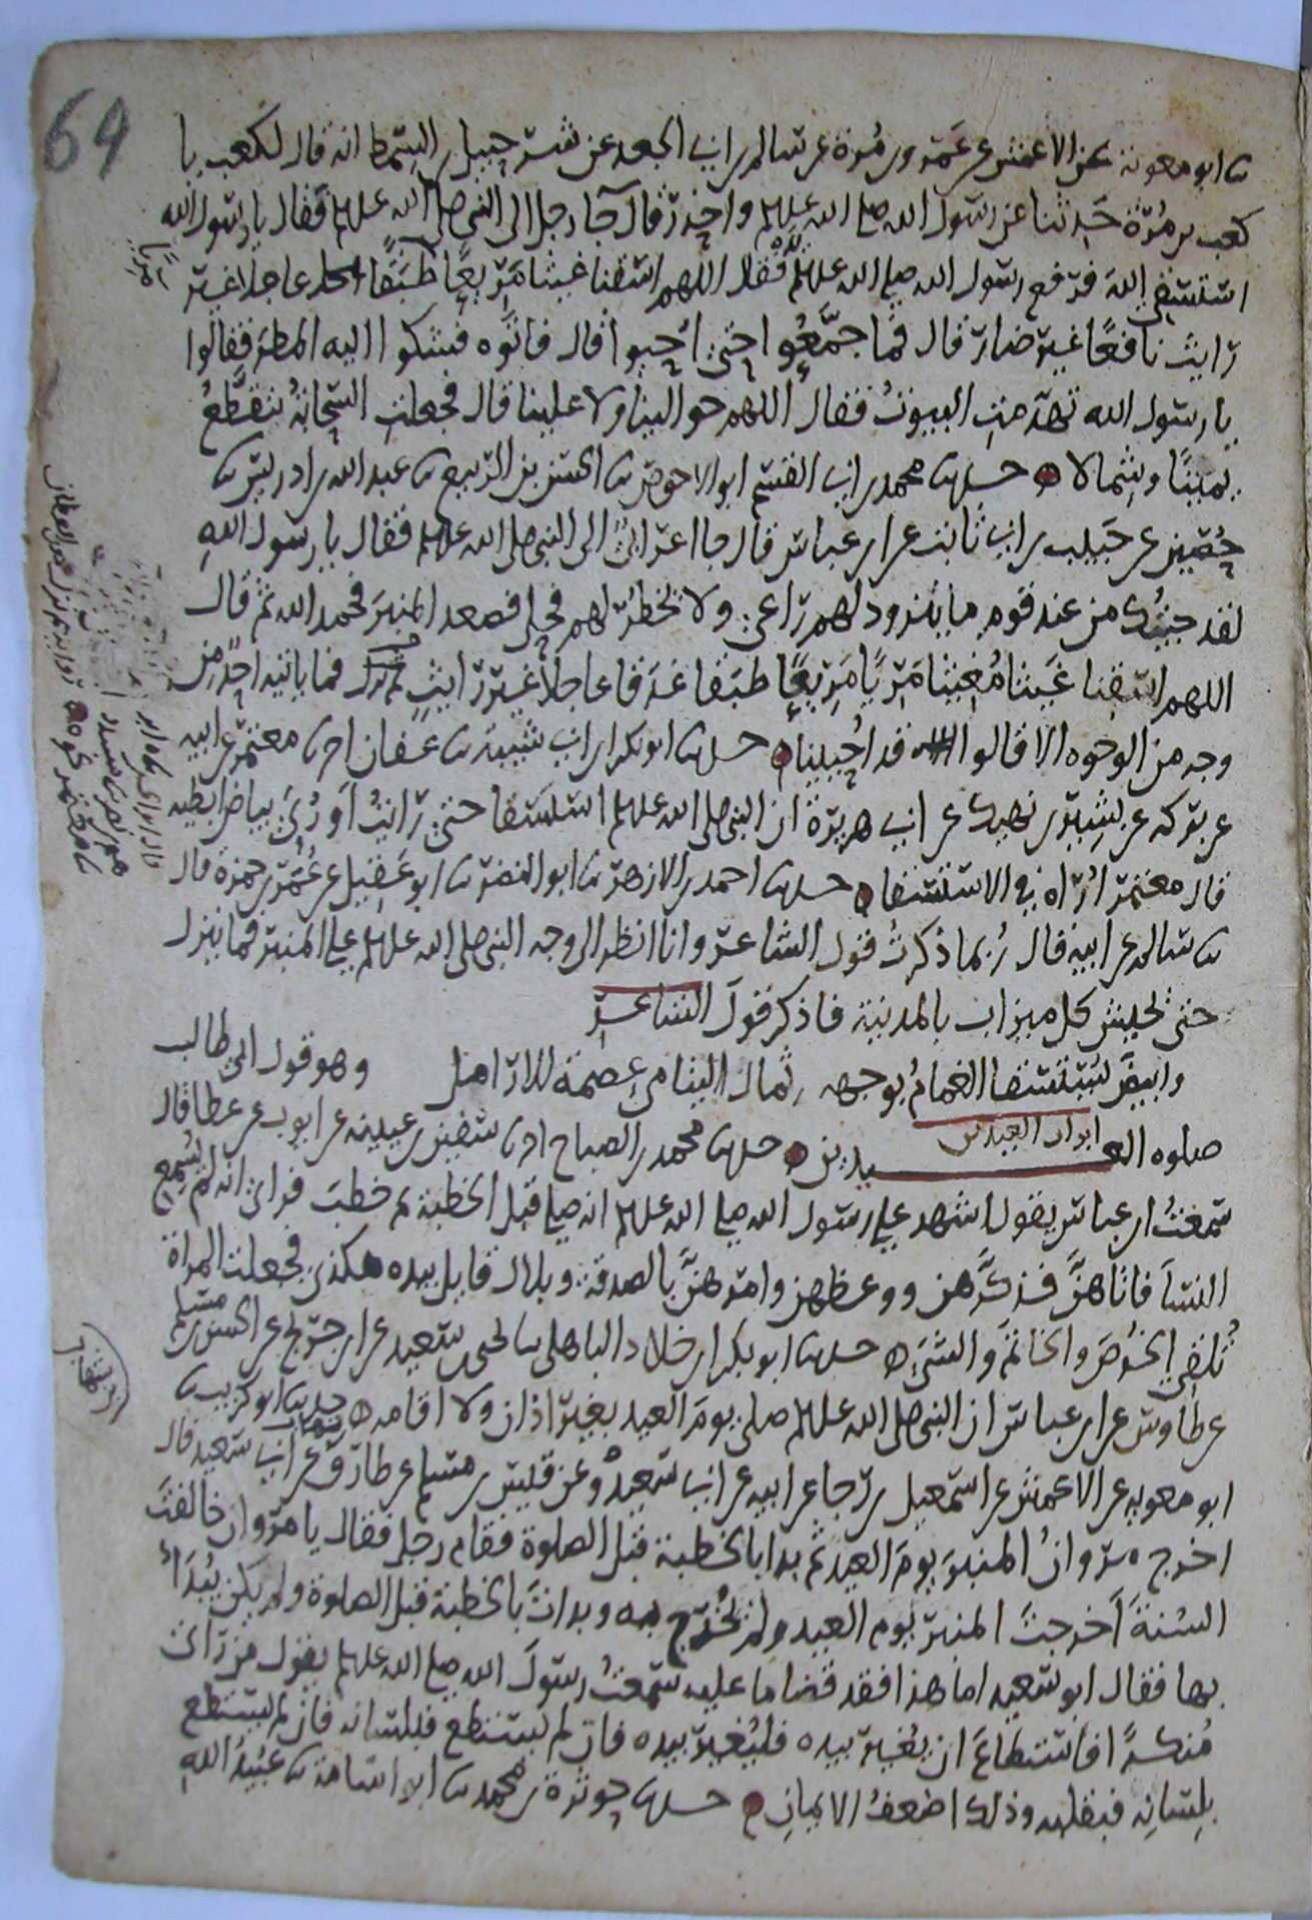 64
ثنا ابو معوية عن الاعمش عن عمرو بن مرة عن سالم بن ابي الجعد عن شرحبيل بن السمط انه قال لكعب يا
كعب بن مرة حدثنا عن رسول الله صلى الله عليه وسلم واحذر قال جا رجل الى النبي صلى الله عليه وسلم فقال يا رسول الله
استسقي الله فرفع رسول الله صلى الله عليه وسلم يده فقال اللهم اسقنا غيثا مريعا طبقا عاجلا غير
رايث نافعا غير ضار قال فما جمعوا حتى احيوا قال فاتوه فشكوا اليه المطر فقالوا
يا رسول الله تهدمت البيوت فقال اللهم حوالينا ولا علينا قال فجعلت السحابة تنقطع
يمينا وشمالا حدثنا محمد بن ابي القسم ابو الاحوص ثنا الحسن بن الربيع ثنا عبد الله بن ادريس ثنا
حصين عن حبيب بن ابي ثابت عن ابن عباس قال جا اعرابي الى النبي صلى الله عليه وسلم فقال يا رسول الله
لقد جيتك من عند قوم ما يتزود لهم راعي ولا يخطر لهم فحل فصعد المنبر فحمد الله ثم قال
اللهم اسقنا غيثا مغيثا مريا مريعا طبقا غدقا عاجلا غير رايث ثم نزل فما ياتيه احد من
وجه من الوجوه الا قالوا قد احيينا حدثنا ابو بكر بن ابي شيبة ثنا عفان ثنا معتمر عن ابيه
عن بركه عن بشير بن نهيك عن ابي هريرة ان النبي صلى الله عليه وسلم استسقا حتى رايت او رئي بياض ابطيه
قال معتمر اراه في الاستسقا حدثنا احمد بن الازهر ثنا ابو النضر ثنا ابو عقيل عن عمر بن حمزة قال
ثنا سالم عن ابيه قال ربما ذكرت قول الشاعر وانا انظر الى وجه النبي صلى الله عليه وسلم على المنبر فما ينزل
حتى يجيش كل ميزاب بالمدينة فاذكر قول الشاعر
وابيض يستسقا الغمام بوجهه ثمال اليتامى عصمة للارامل وهو قول ابي طالب
ابواب العيدين
صلوه العيدين حدثنا محمد بن الصباح ثنا سفين بن عيينه عن ايوب عن عطا قال
سمعت ابن عباس يقول اشهد على رسول الله صلى الله عليه وسلم انه صلى قبل الخطبة ثم خطب فراى انه لم يسمع
النسا فاتاهن فذكرهن ووعظهن وامرهن بالصدقة وبلال قايل بيده هكذى فجعلت المراة
تلقي الخرص والخاتم والشي حدثنا ابو بكر بن خلاد الباهلي ثنا يحيى بن سعيد عن ابن جريج عن الحسن بن مسلم
عن طاوس عن ابن عباس ان النبي صلى الله عليه وسلم صلى يوم العيد بغير اذان ولا اقامه حدثنا ابو كريب ثنا
ابو معويه عن الاعمش عن اسمعيل بن رجا عن ابيه عن ابي سعيد وعن قيس بن مسلم عن طارق بن شهاب عن ابي سعيد قال
اخرج مروان المنبر يوم العيد ثم بدا بالخطبة قبل الصلوة فقام رجل فقال يا مروان خالفت
السنة اخرجت المنبر يوم العيد ولم يخرج به وبدات بالخطبة قبل الصلوة ولم يكن يبدا
بها فقال ابو سعيد اما هذا فقد قضا ما عليه سمعت رسول الله صلى الله عليه وسلم يقول من راى
منكرا فاستطاع ان يغيره بيده فليغيره بيده فان لم يستطع فبلسانه فان لم يستطع
بلسانه فبقلبه وذلك اضعف الايمان حدثنا حوثرة بن محمد ثنا ابو اسامة ثنا عبيد الله